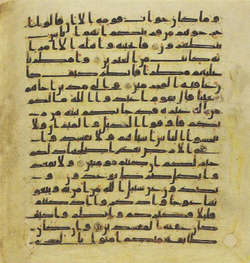 وما كان جواب قومه الا ان قالوا ا
خرجوهم من قريتكم انهم اناس
يتطهرون فانجينه واهله الا امرا
ته كانت من الغبرين وامطرنا
عليهم مطرا فانظر كيف كا
ن عقبه المجرمين والى مدين ا
خاهم شعيبا قال يقوم اعبدوا الله ما
لكم من اله غيره قد جاتكم بينه من ر
بكم فاوفوا الكيل والميزان ولا
تبخسوا الناس اشياهم ولا تفسدوا في
الارض بعد اصلحها ذلكم
خير لكم ان كنتم مومنين ولا تقعد
وا بكل صرط توعدون و
تصدون عن سبيل الله من امن به وتبغو
نها عوجا واذكروا اذ كنتم
قليلا فكثركم وانظروا كيف
كان عقبه المفسدين وان كان
طايفه منكم امنوا بالذي